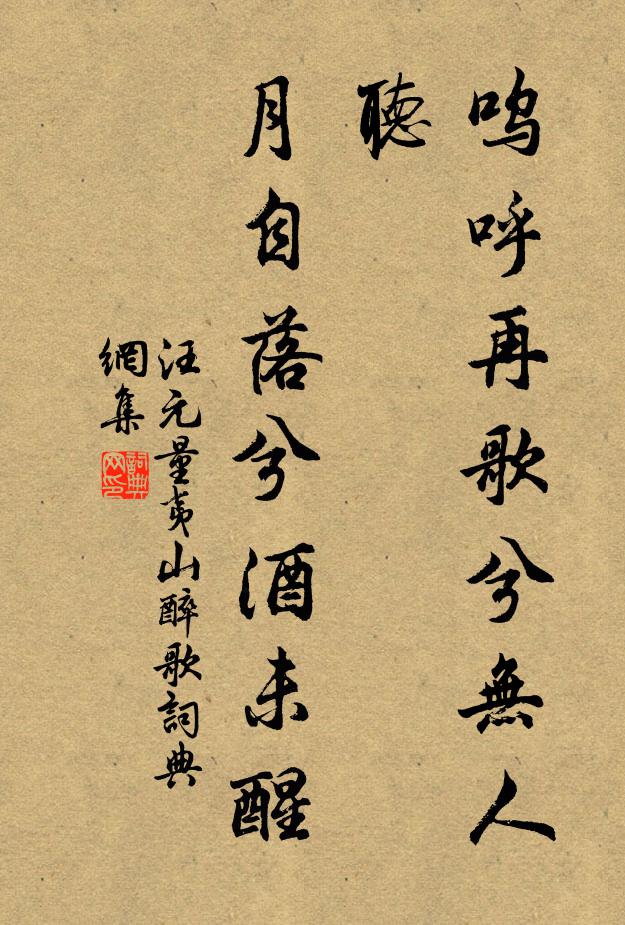 嗚呼再歌兮無人
聽
月自落兮酒未醒
汪元量夷山醉歌詞典
網集
詞典
网印